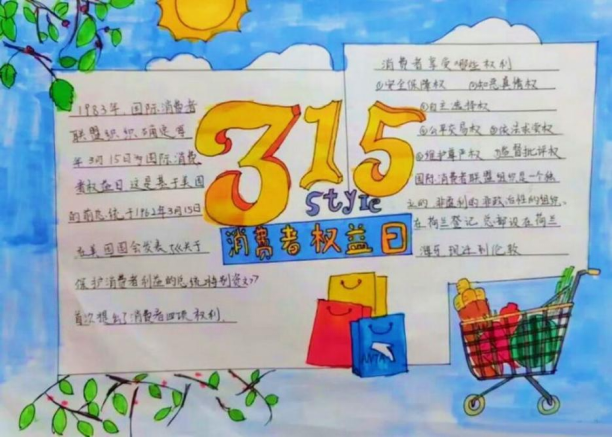 1983年，国际消费者
联盟组织确定每
年3月15日为国际消费
者权益日这是基于美国
前总统于1962年3月15日
在美国国会发表《关于
保护消费者利益的总统特别咨文》
首次提出了消费者四项权利.
315
Style
消费者权益日
消费者享受哪些权利
①安全保障权 ②知悉真情权
③自主选择权
④公平交易权 ⑤依法求偿权
⑥维护尊严权 ⑦监督批评权
国际消费者联盟组织是一个独
立的、非盈利的非政治性的组织.
在荷兰登记总部设在荷兰
海牙现迁到伦敦